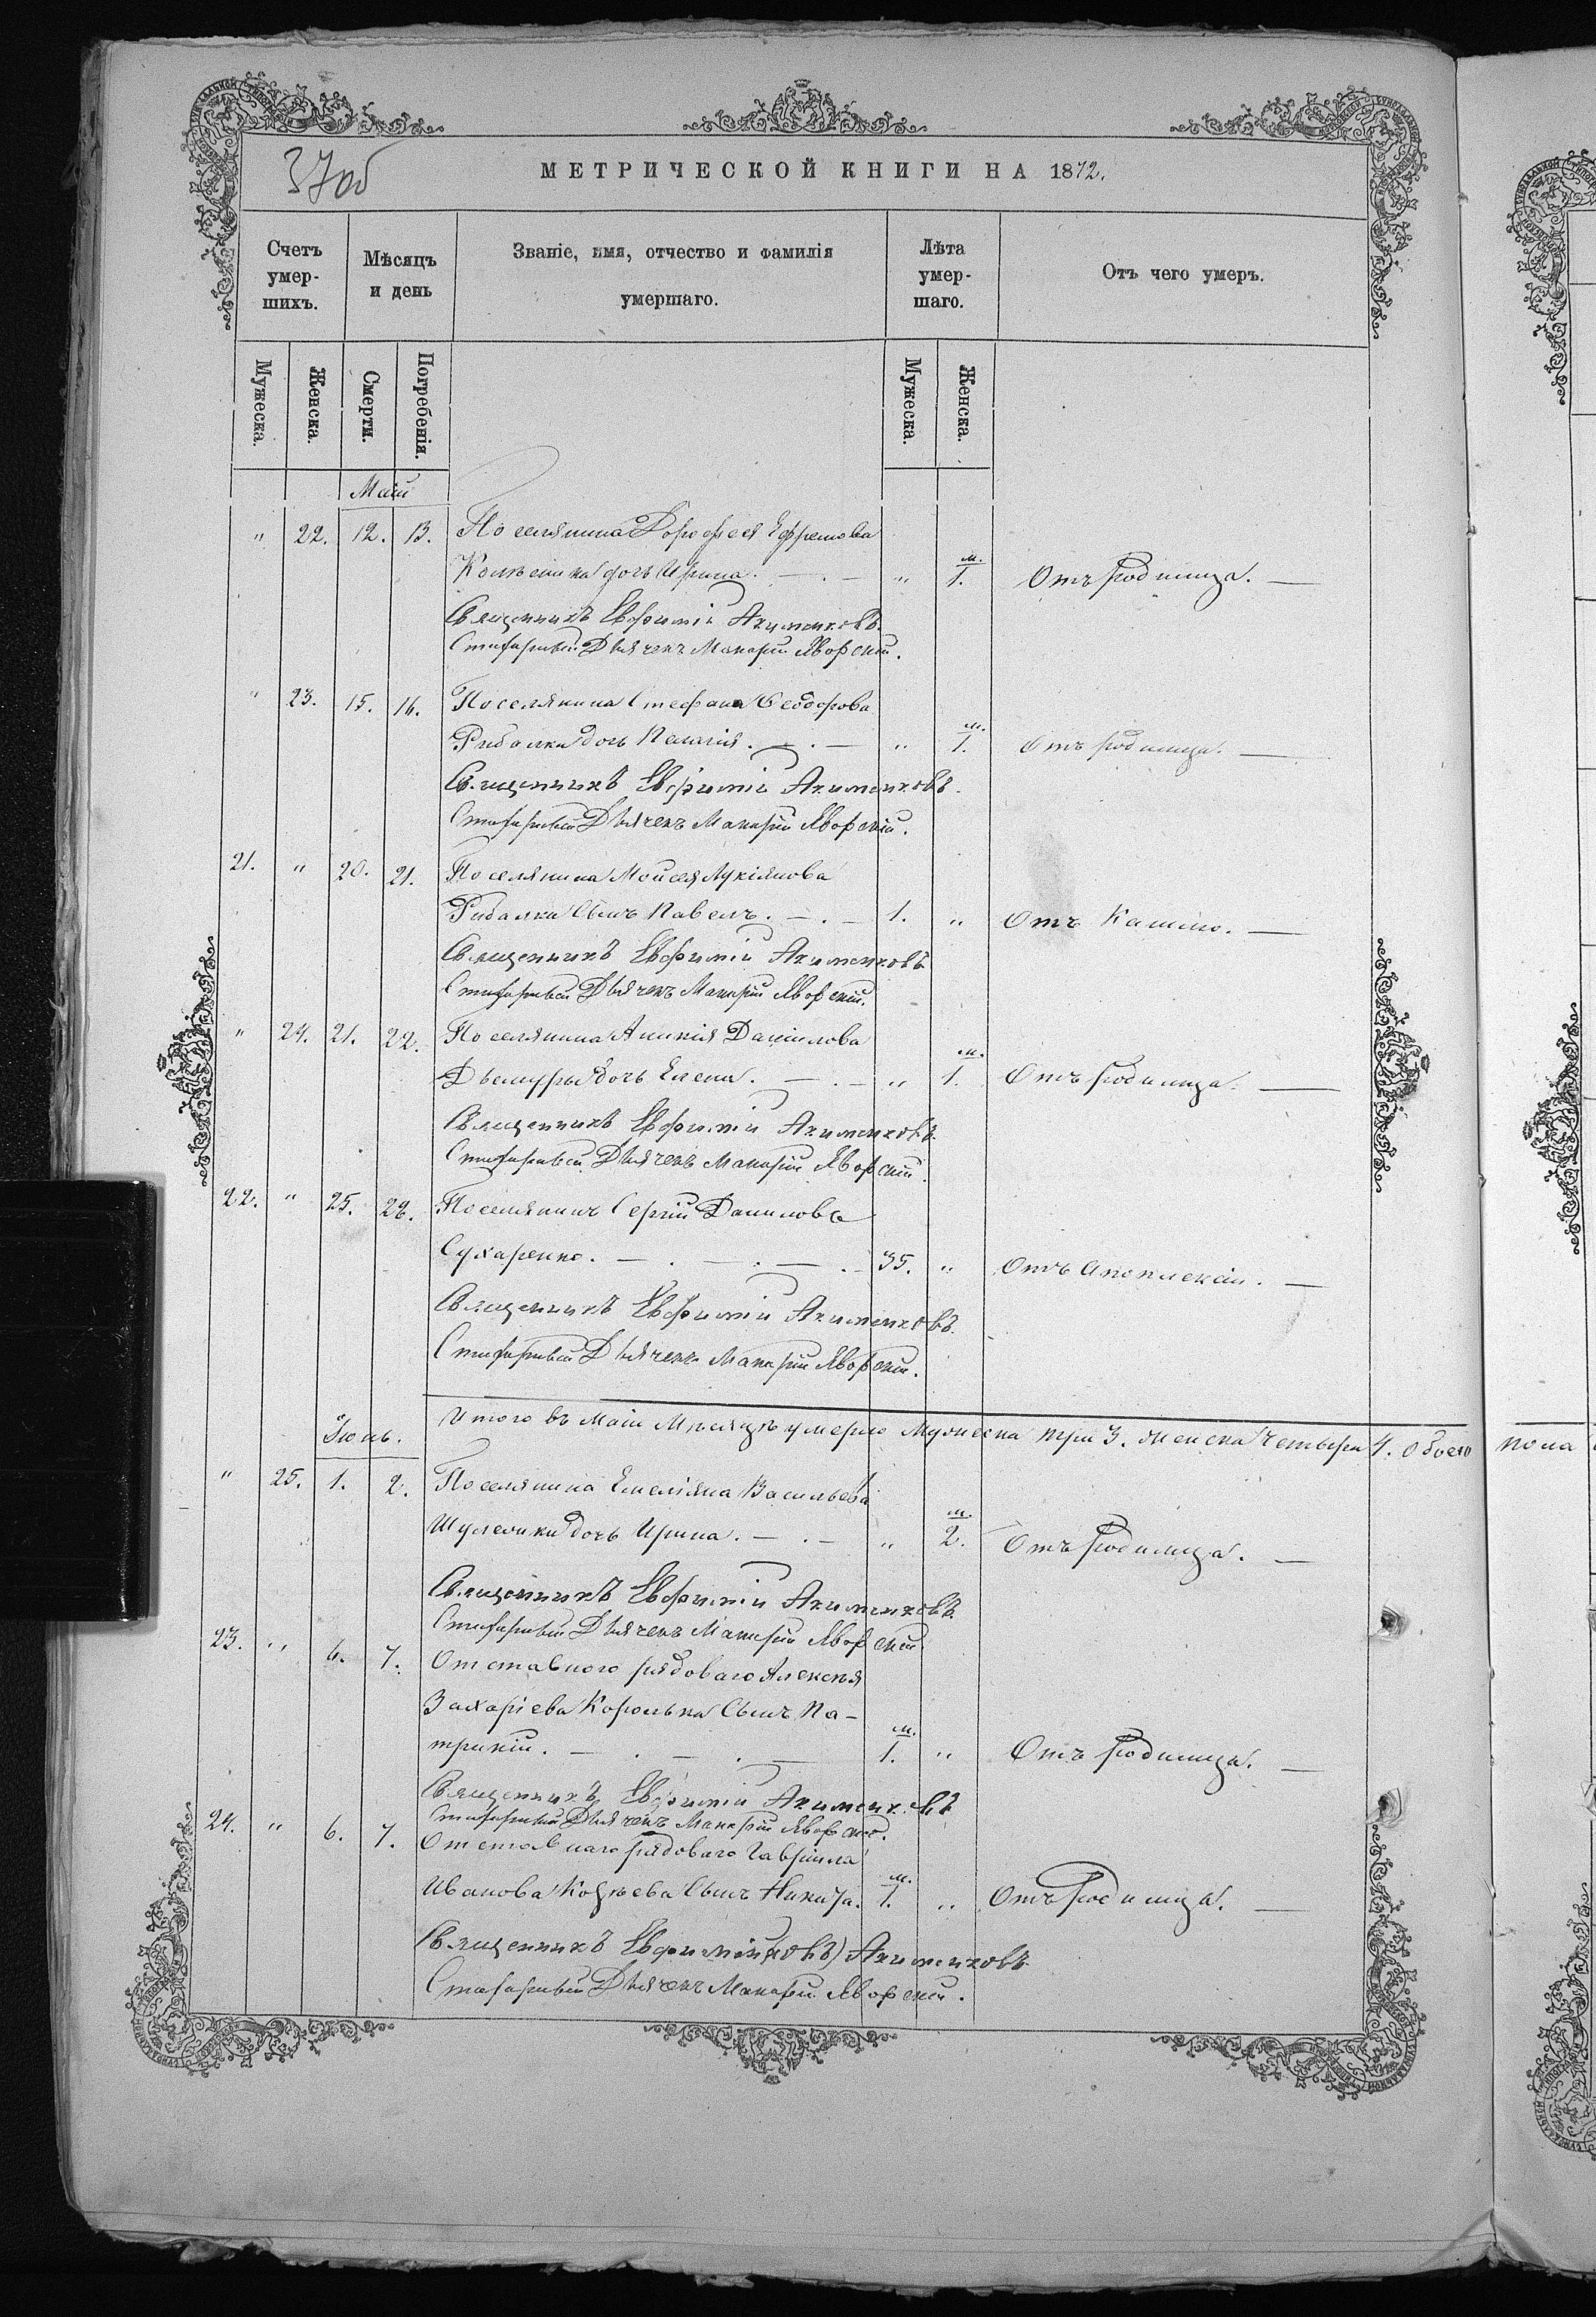 37об
МЕТРИЧЕСКОЙ КНИГИ НА 1872.
Счетъ умер-шихъ.
Мѣсяцъ и день
Званіе, имя, отчество и фамилія умершаго.
Лѣта умер-шаго.
Отъ чего умеръ.
Мужеска.
Женска.
Смерти.
Погребенія.
Мужеска.
Женска.
Май
" 22. 12. 13. Поселянина Дорофея Ефремова
дочь Ирина. — . — " м. 1. Отъ родимца. —
Священникъ Евфимій Акименковъ.
Стихарный Дьячекъ Макарій Яворскій.
" 23. 15. 16. Поселянина Стефана Ѳеодорова
Рибалки дочь Пелагія. — . — " м. 1. Отъ родимца. —
Священникъ Евфимій Акименковъ.
Стихарный Дьячекъ Макарій Яворскій.
21. " 20. 21. Поселянина Мойсея Лукіянова
Рибалки сынъ Павелъ. — . — 1. " Отъ Кашлю. —
Священникъ Евфимій Акименковъ
Стихарный Дьячекъ Макарій Яворскій.
" 24. 21. 22. Поселянина Аникія Даніилова
дочь Елена. — . — " м. 1. Отъ родимца. —
Священникъ Евфимій Акименковъ.
Стихарный Дьячекъ Макарій Яворскій.
22. " 25. 28. Поселянинъ Сергій Даниловъ
Сухаренко. — . — . — . — 35. " Отъ Апоплексіи. —
Священникъ Евфимій Акименковъ.
Стихарный Дьячекъ Макарій Яворскій.
Итого въ Маіи Мѣсяцѣ умерло Мужеска три 3. женска Четыри 4. Обоего пола
Іюнь.
" 25. 1. 2. Поселянина Емеліяна Васильева
дочь Ирина. — . — " м. 2. Отъ родимца. —
Священникъ Евфимій Акименковъ.
Стихарный Дьячекъ Макарій Яворскій.
23. " 6. 7. Отставного рядоваго Алексѣя
Захаріева Королька Сынъ Па-
трикій. — . — . — м. 1. " Отъ родимца. —
Священникъ Евфимій Акименковъ
Стихарный Дьячекъ Макарій Яворскій.
24. " 6. 7. Отставного рядоваго Гавріила
Иванова Козѣева Сынъ Никита. м. 1. " Отъ родимца. —
Священникъ Евфимій(ковъ) Акименковъ
Стихарный Дьячекъ Макарій Яворскій.